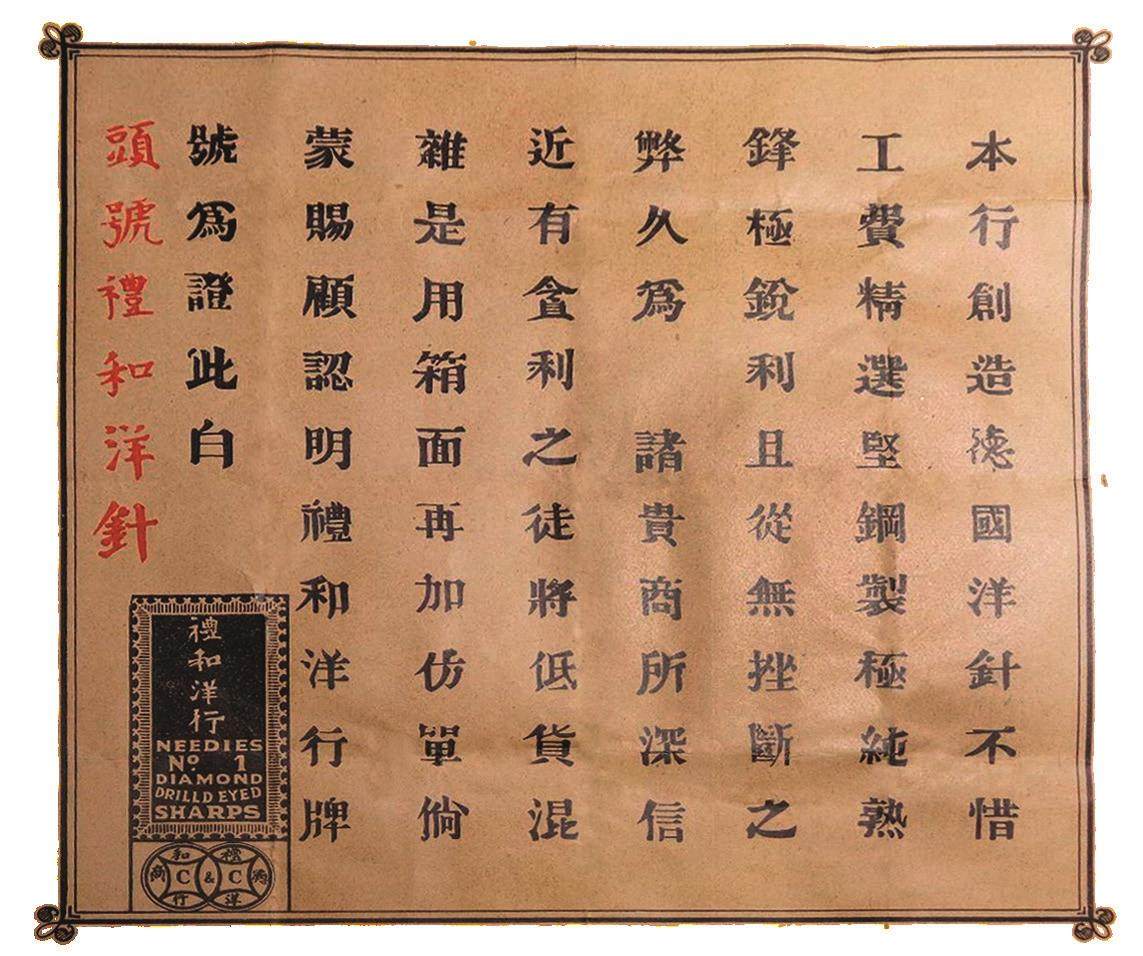 本行創造德國洋針不惜
工費精選堅鋼製極純熟
鋒極銳利且從無挫斷之
弊久爲 諸貴商所深信
近有貪利之徒將低貨混
雜是用箱面再加仿單倘
蒙賜顧認明禮和洋行牌
號爲證此白
頭號禮和洋針
禮和洋行
NEEDIES
Nº 1
DIAMOND
DRILLD EYED
SHARPS
和 禮
商 C & C
行 洋